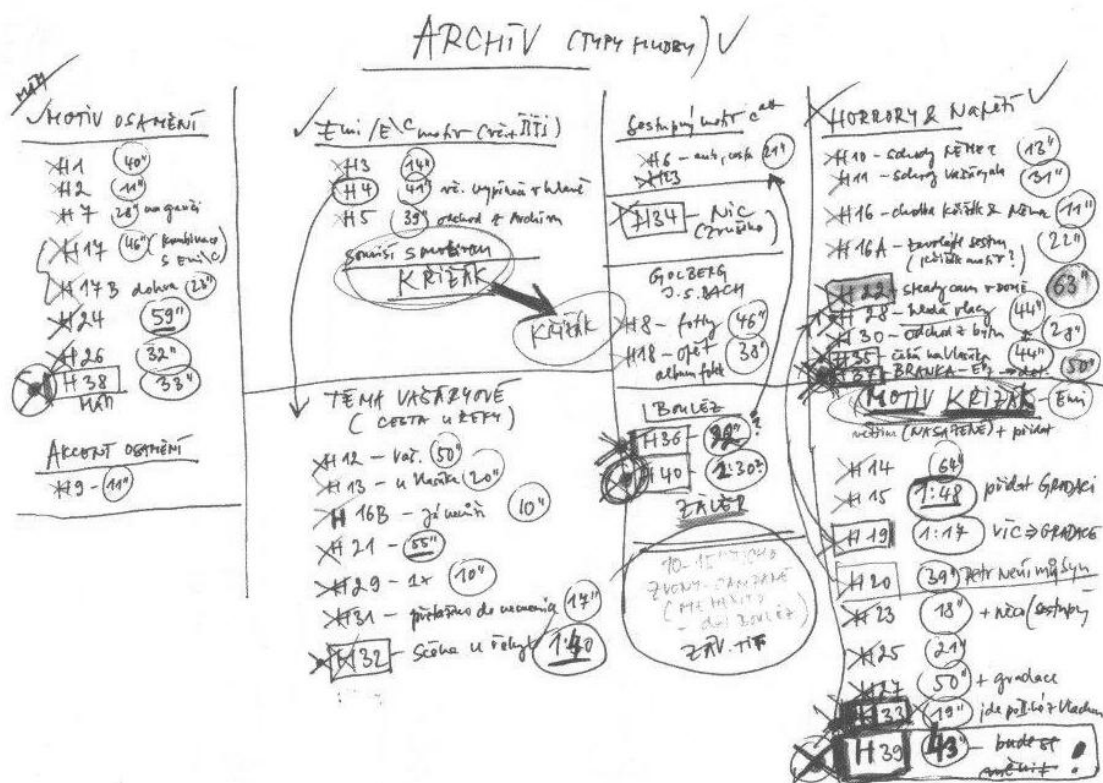 ARCHIV (TYPY HUDBY) V
MOTIV OSAMĚNÍ
H1 40"
H2 11"
H7 28"
H17 46" (kombinace s Emi/C)
H17B dohra 23"
H24 59"
H26 32"
H38 33"
AKCENT OSAMĚNÍ
H9 - 11"
Emi/E\C motiv
H3 14"
H4 41" vč. vypíná v hlavě
H5 39" odchod z Archivu
souvisí s motivem
KŘIŽÁK
KŘIŽÁK
TÉMA VAŠÁRYOVÉ
(CESTA U ŘEKY)
H12 - Vaš. 50"
H13 - u Vlasáka 20"
H16B - 10"
H21 - 55"
H29 - 1x 10"
H31 - do nemocnice 17"
H32 - Scéna u 1:40
Sestupný motiv C
H6 - auto, cesta 21"
H23
H34 - NIC
(zrušeno)
GOLBERG
J.S.BACH
H8 - fotky 46"
H18 - opět 38"
album fotek
BOULEZ
H36 - ?
H40 - 1:30?
ZÁVĚR
10-15" TICHO
ZVONY-CAMPANE
BOULEZ)
ZÁV. TIT
HORRORY & NAPĚTÍ
H10 - schody NĚMEC 13"
H11 - schody Vašáryová 31"
H16 - chodba Křižák & Němec 11"
H16A - zavolejte sestru 22"
(Křižák motiv?)
H22 - steady cam v domě 63"
H28 - hledá vlasy 44"
H30 - odchod z bytu 28"
H35 - čeká na Vlasáka 44"
H37 - BRANKA - 50"
MOTIV KŘIŽÁK - Emi
(NASAZENÉ) + přidat
H14 64"
H15 1:48 přidat GRADACI
H19 1:17 VÍC → GRADACE
H20 39" Petr není můj syn
H23 18" + něco (sestupný
H25 21"
H27 50" + gradace
H33 19" jde
H39 43" - bude se
měnit !